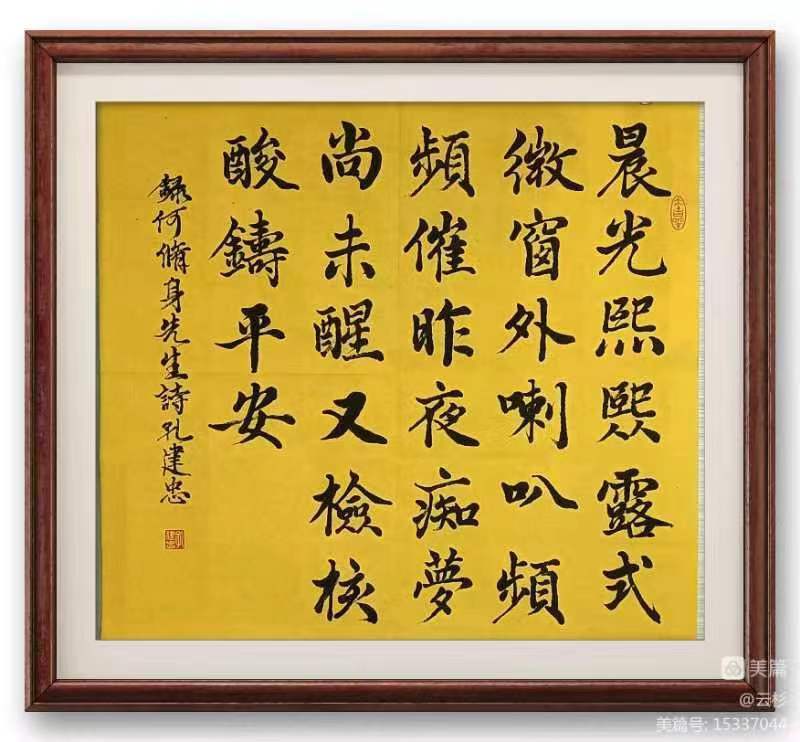 晨光熙熙露式
微窗外喇叭頻
頻催昨夜痴夢
尚未醒又檢核
酸鑄平安
錄何脩身先生詩孔建忠
美篇
@云杉
美篇号: 15337044